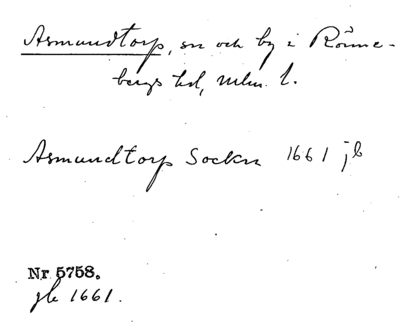 Asmundtorp, sn och by i Rönne-
bergs hd, Mlm. l.
Asmundtorp Sockn 1661 jb
Nr 5758.
jb 1661.